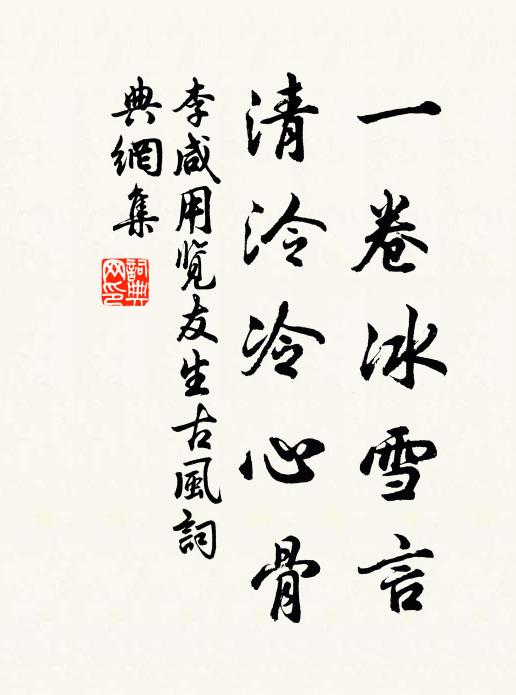 一卷冰雪言
清泠冷心骨
李咸用覽友生古風詞
典網集
詞典網印